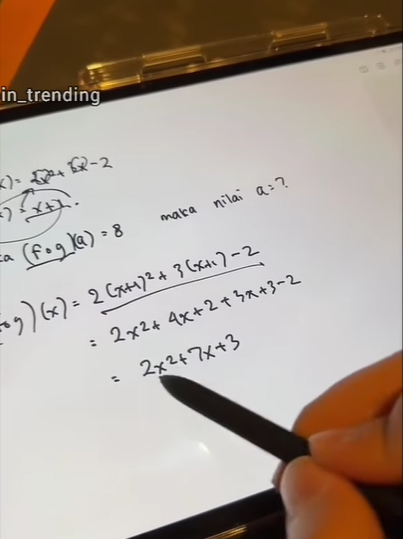 in_trending
x) = 2x² + 3x - 2
) = x+1.
(fog)(a) = 8 maka nilai a = ?
og)(x) = 2(x+1)² + 3(x+1) - 2
= 2x² + 4x + 2 + 3x + 3 - 2
= 2x² + 7x + 3